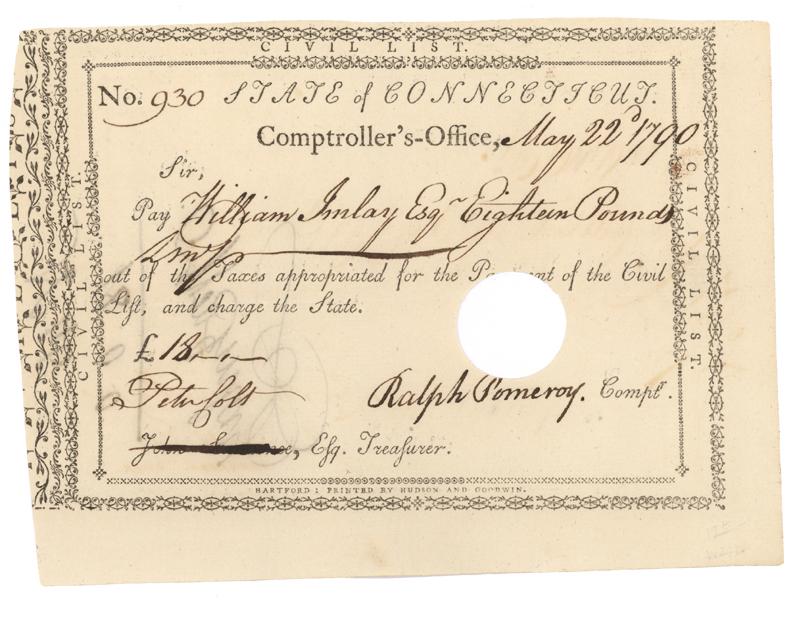 CIVIL LIST.
No. 930 STATE of CONNECTICUT.
Comptroller's-Office, May 22d 1790
Sir,
Pay William Imlay Esqr Eighteen Pounds
out of the Taxes appropriated for the Pa ent of the Civil
List, and charge the State.
£ 18 - -
Peter Colt
Ralph Pomeroy. Compt.
John , Esq. Treasurer.
HARTFORD: PRINTED BY HUDSON AND GOODWIN.
CIVIL LIST.
CIVIL LIST.